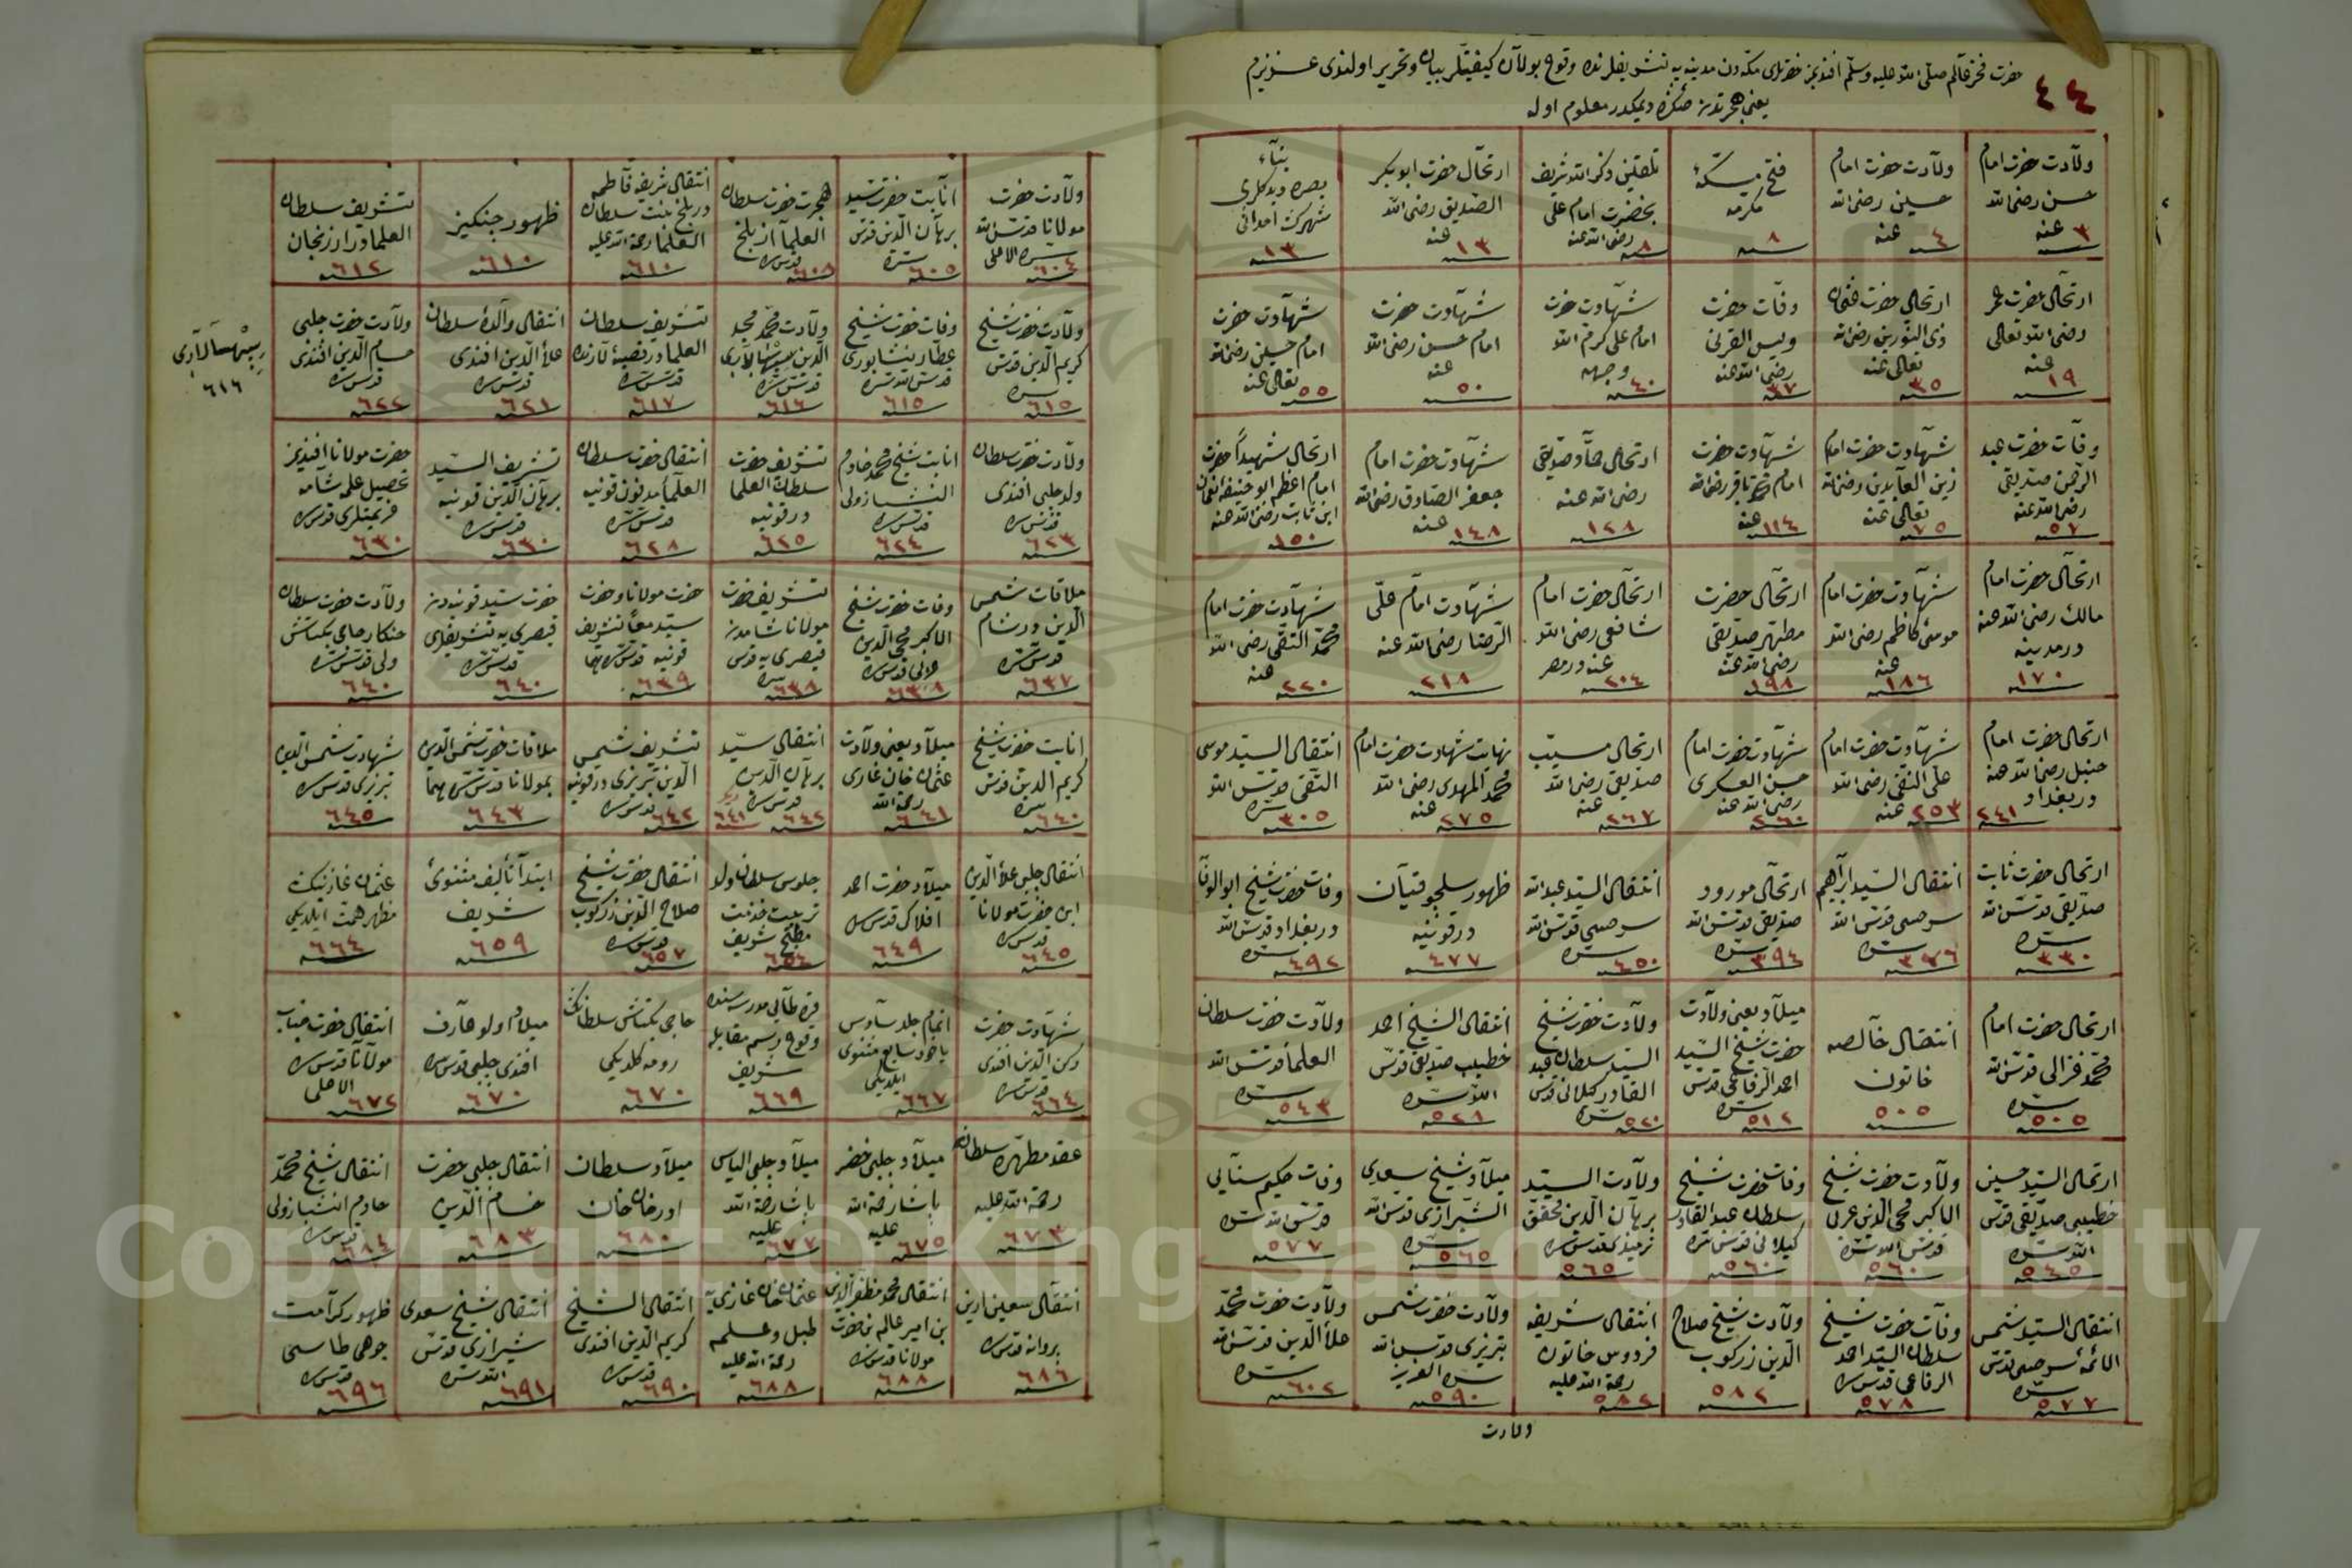 ٤٤
حضرت فخر عالم صلى الله عليه وسلم افندیمز حضرتلری مکه دن مدینه یه تشریفلرنده وقوع بولان کیفیتلر بیان و تحریر اولندی عزیزم
یعنی هجرتدن صکره دیمکدر معلوم اوله
ولادت حضرت امام
حسن رضى الله
عنه
٣
ولادت حضرت امام
حسین رضى الله
عنه
٤
فتح مکه
مکرمه
٨
تلقین ذکر الله شریف
بحضرت امام علی
رضى الله عنه
٨
ارتحال حضرت ابو بکر
الصدیق رضى الله
عنه
١٣
بناء
بصره
١٣
ارتحال حضرت عمر
رضى الله تعالى
عنه
١٩
ارتحال حضرت عثمان
ذی النورین رضى الله
تعالى عنه
٣٥
وفات حضرت
ویس القرنی
رضى الله عنه
٣٧
شهادت حضرت
امام علی کرم الله
وجهه
٤٠
شهادت حضرت
امام حسن رضى الله
عنه
٥٠
شهادت حضرت
امام حسین رضى الله
تعالى عنه
٥٥
وفات حضرت عبد
الرحمن صدیقی
رضى الله عنه
٥٧
شهادت حضرت امام
زین العابدین رضى الله
تعالى عنه
٧٥
شهادت حضرت
امام محمد باقر رضى الله
عنه
١١٤
ارتحال صدیقی
رضى الله عنه
١٢٨
شهادت حضرت امام
جعفر الصادق رضى الله
عنه
١٤٨
ارتحال شهیداً حضرت
امام اعظم ابو حنیفه نعمان
ابن ثابت رضى الله عنه
١٥٠
ارتحال حضرت امام
مالک رضى الله عنه
در مدینه
١٧٠
شهادت حضرت امام
موسی کاظم رضى الله
عنه
١٨٦
ارتحال حضرت
مطهر صدیقی
رضى الله عنه
١٩٨
ارتحال حضرت امام
شافعی رضى الله
عنه در مصر
٢٠٤
شهادت امام علی
الرضا رضى الله عنه
٢١٨
شهادت حضرت امام
محمد التقی رضى الله
عنه
٢٢٠
ارتحال حضرت امام
حنبل رضى الله عنه
در بغداد ٢٤١
شهادت حضرت امام
علی النقی رضى الله
عنه ٢٥٣
شهادت حضرت امام
حسن العسکری
رضى الله عنه
٢٦٠
ارتحال مسیب
صدیقی رضى الله
عنه
٢٦٧
شهادت حضرت امام
محمد المهدی رضى الله
عنه ٢٧٥
انتقال السید موسی
التقی قدس الله
سره
٣٠٥
ارتحال حضرت ثابت
صدیقی قدس الله
سره
٣٣٠
انتقال السید ابراهیم
سرخسی قدس الله
سره
ارتحال مورود
صدیقی قدس الله
سره
٣٩٤
انتقال السید عبد الله
سرخسی قدس الله
سره
٤٥٠
ظهور سلجوقیان
در قونیه
٤٧٧
وفات حضرت شیخ ابو الوفا
در بغداد قدس الله
سره
٤٩٢
ارتحال حضرت امام
محمد غزالی قدس الله
سره
٥٠٥
انتقال خالصه
خاتون
٥٠٥
میلاد یعنی ولادت
حضرت شیخ السید
احمد الرفاعی قدس
سره
٥١٢
ولادت حضرت شیخ
السید سلطان عبد
القادر کیلانی قدس
سره
٥٢٠
انتقال الشیخ احمد
خطیب صدیقی قدس
الله سره
٥٢١
ولادت حضرت سلطان
العلما قدس الله
سره
٥٤٣
ارتحال السید حسین
خطیبی صدیقی قدس
الله سره
٥٤٥
ولادت حضرت شیخ
الاکبر محی الدین عربی
قدس الله سره
٥٦٠
وفات حضرت شیخ
سلطان عبد القادر
کیلانی قدس سره
٥٦٠
ولادت السید
برهان الدین محقق
ترمذی قدس سره
٥٦٥
میلاد شیخ سعدی
الشیرازی قدس الله
سره
٥٦٥
وفات حکیم سنایی
قدس الله سره
٥٧٧
انتقال السید شمس
الائمه سرخسی قدس
سره
٥٧٧
وفات حضرت شیخ
سلطان السید احمد
الرفاعی قدس سره
٥٧٨
ولادت شیخ صلاح
الدین زرکوب
٥٨٢
انتقال شریفه
فردوس خاتون
رحمة الله علیه
٥٨٢
ولادت حضرت شمس
تبریزی قدس الله
سره العزیز
٥٩٠
ولادت حضرت محمد
علاء الدین قدس الله
سره
٦٠٢
ولادت
ولادت حضرت
مولانا قدس الله
سره الاعلی
٦٠٤
انابت حضرت سید
برهان الدین قدس
سره
٦٠٥
هجرت حضرت سلطان
العلما از بلخ
قدس سره
٦٠٨
انتقال شریفه فاطمه
در بلخ بنت سلطان
العلما رحمة الله علیه
٦١٠
ظهور جنکیز
٦١٠
تشریف سلطان
العلما در ارزنجان
٦١٢
ولادت حضرت شیخ
کریم الدین قدس
سره
٦١٥
وفات حضرت شیخ
عطار نیشابوری
قدس الله سره
٦١٥
ولادت محمد مجد
الدین سپهسالاری
قدس سره
٦١٦
تشریف سلطان
العلما در قصبه لارنده
قدس سره
٦١٧
انتقال والده سلطان
علاء الدین افندی
قدس سره
٦٢١
ولادت حضرت چلبی
حسام الدین افندی
قدس سره
٦٢٢
سپهسالاری
٦١٦
ولادت حضرت سلطان
ولد چلبی افندی
قدس سره
٦٢٣
انابت شیخ محمد خادم
قدس سره
٦٢٤
تشریف حضرت
سلطان العلما
در قونیه
٦٢٥
انتقال حضرت سلطان
العلما مدفون قونیه
قدس سره
٦٢٨
تشریف السید
برهان الدین قونیه
قدس سره
٦٣٠
حضرت مولانا افندیمز
تحصیل علمه شامه
عزیمتلری قدس سره
٦٣٠
ملاقات شمس
الدین در شام
قدس سره
٦٣٧
وفات حضرت شیخ
الاکبر محی الدین
عربی قدس سره
٦٣٨
تشریف حضرت
مولانا شامدن
قیصری یه قدس
سره
٦٣٨
حضرت مولانا و حضرت
سید معاً تشریف
قونیه قدس سرهما
٦٣٩
حضرت سید قونیه دن
قیصری یه تشریفلری
قدس سره
٦٤٠
ولادت حضرت سلطان
خنکار حاجی بکتاش
ولی قدس سره
٦٤٠
انابت حضرت شیخ
کریم الدین قدس
سره
٦٤٠
میلاد یعنی ولادت
عثمان خان غازی
رحمة الله
٦٤١
انتقال سید
برهان الدین
قدس سره
٦٤٢
٦٤١
تشریف شمس
الدین تبریزی در قونیه
قدس سره
٦٤٢
ملاقات حضرت شمس الدین
بمولانا قدس سرهما
٦٤٣
شهادت شمس الدین
تبریزی قدس سره
٦٤٥
انتقال چلبی علاء الدین
ابن حضرت مولانا
قدس سره
٦٤٥
میلاد حضرت احمد
افلاکی قدس سره
٦٤٩
جلوس سلطان ولد
تربیت خدمت
مطبخ شریف
٦٥٤
انتقال حضرت شیخ
صلاح الدین زرکوب
قدس سره
٦٥٧
ابتدا تألیف مثنوئ
شریف
٦٥٩
عثمان غازینک
مظهر همت ایلدیکی
٦٦٤
شهادت حضرت
رکن الدین افندی
قدس سره
٦٦٤
اتمام جلد سادس
مثنوی
ایلدیکی
٦٦٧
قره طای مدرسه سنده
وقوع رسم مقابله
شریف
٦٦٩
حاجی بکتاش سلطانک
رومه کلدیکی
٦٧٠
میلاد اولو عارف
افندی چلبی قدس سره
٦٧٠
انتقال حضرت جناب
مولانا قدس سره
الاعلی
٦٧٢
عقد مطهره سلطان
رحمة الله علیه
٦٧٣
میلاد چلبی خضر
پاشا رحمة الله
علیه
٦٧٥
میلاد چلبی الیاس
پاشا رحمة الله
علیه
٦٧٧
میلاد سلطان
اورخان خان
٦٨٠
انتقال چلبی حضرت
حسام الدین
٦٨٣
انتقال شیخ محمد
خادم
قدس سره
٦٨٤
انتقال معین الدین
پروانه قدس سره
٦٨٦
انتقال محمد مظفر الدین
بن امیر عالم بن حضرت
مولانا قدس سره
٦٨٨
عثمان خان غازی یه
طبل و علمه
رحمة الله علیه
٦٨٨
انتقال الشیخ
کریم الدین افندی
قدس سره
٦٩٠
انتقال شیخ سعدی
شیرازی قدس
الله سره
٦٩١
ظهور کرامت
قدس سره
٦٩٦
Copyright © King Saud University